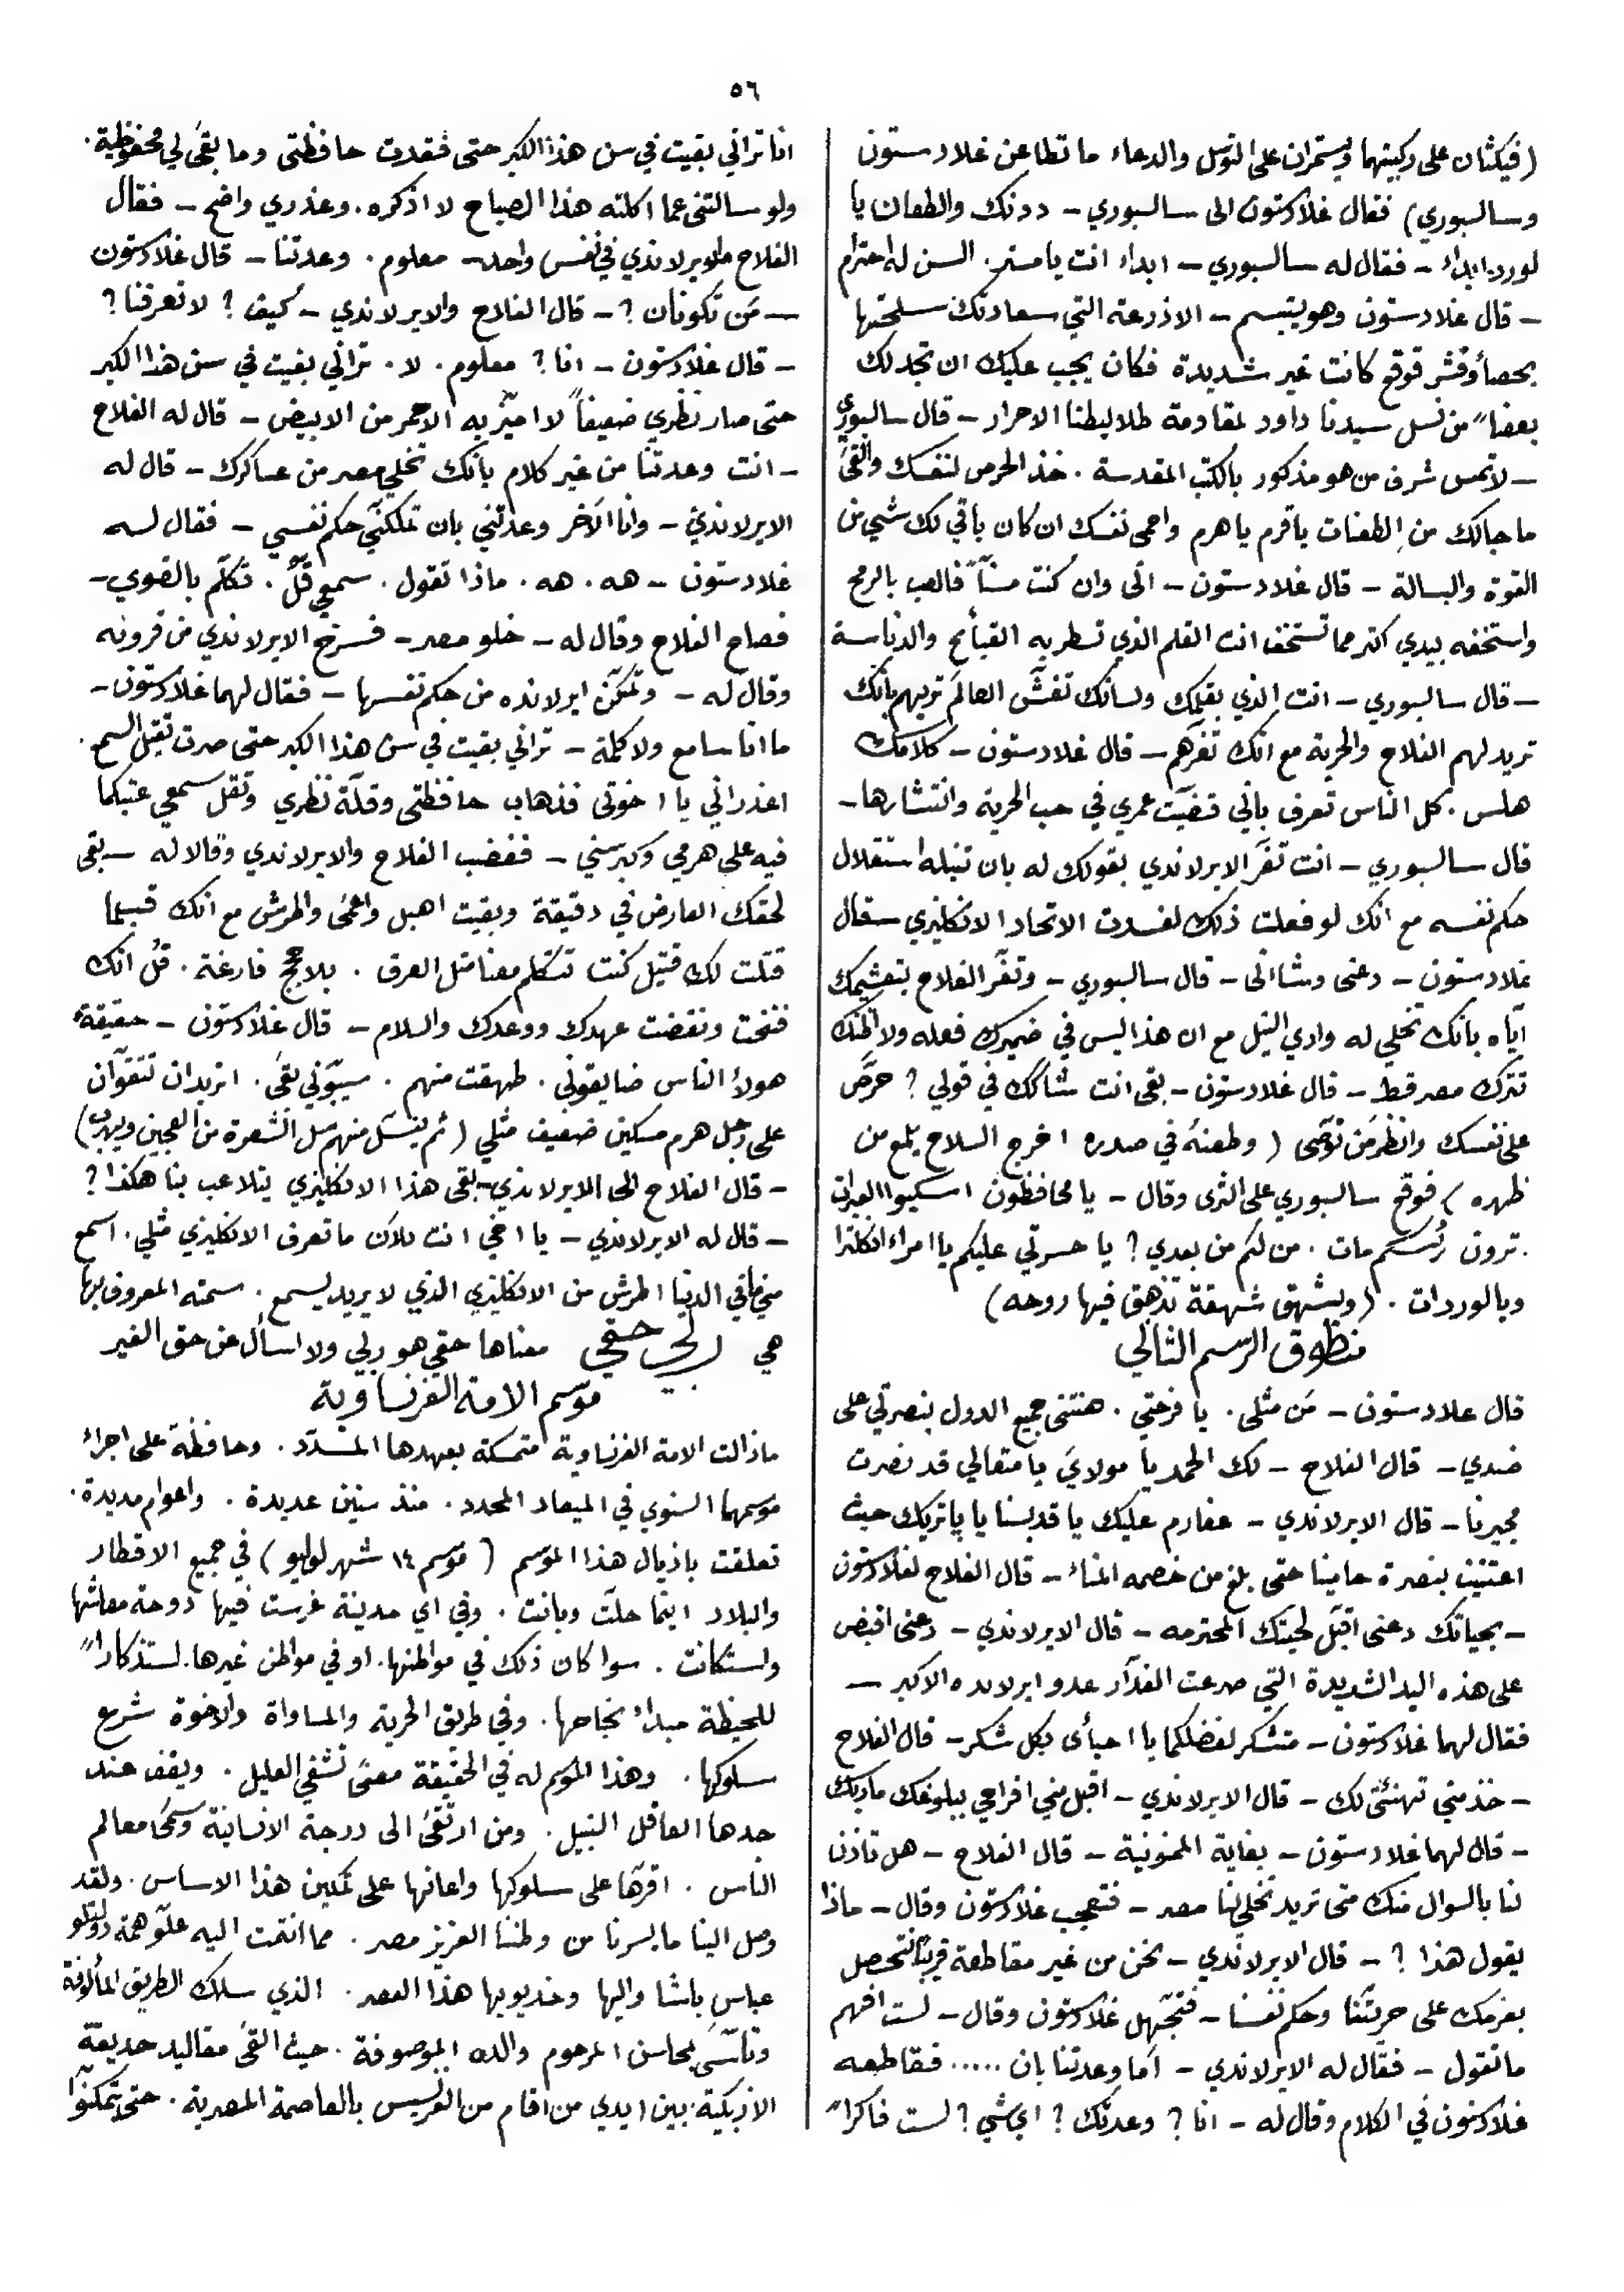 ٥٦
(فيكثان على ركبتيهما ويستمران على التوسل والدعاء ما تطاعن غلادستون
وسالسبوري) فقال غلادستون الى سالسبوري – دونك والطعان يا
لورد ابداء – فقال له سالسبوري – ابداء انت يا مستر. السن له احترام
– قال غلادستون وهو يتبسم – الاذرعة التي سعادتك سلحتها
بحصا وقشر قوقع كانت غير شديدة فكان يجب عليك ان تجد لك
بعضاً من نسل سيدنا داود لمقاومة طلايبطنا الاحرار – قال سالسبوري
– لا تمس شرف من هو مذكور بالكتب المقدسة . خذ الحرص لنفسك والقى
ما جالك من الطعنات يا قرم يا هرم واحمي نفسك ان كان باقي لك شيء من
القوة والبسالة – قال غلادستون – انى وان كنت مسنّاً فالعب بالرمح
واستخفه بيدي اكثر مما تستخف انت القلم الذي تسطر به القبائح والدناسة
– قال سالسبوري – انت الذي بقلمك ولسانك تغش العالم توهمهم بانك
تريد لهم الفلاح والحرية مع انك تغرهم – قال غلادستون – كلامك
هلس . كل الناس تعرف باني قضيت عمري في حب الحرية وانتشارها –
قال سالسبوري – انت تغر الايرلاندي بقولك له بان تنيله استقلال
حكم نفسه مع انك لو فعلت ذلك لفسدت الاتحاد الانكليزي – قال
غلادستون – دعنى وشانى – قال سالسبوري – وتغر الفلاح بتعشيمك
اياه بانك تخلي له وادي النيل مع ان هذا ليس في ضميرك فعله ولا اظنك
تترك مصر قط – قال غلادستون – بقى انت شاكك في قولي ؟ حرّص
على نفسك وانظر من توصى ( وطعنه في صدره اخرج السلاح يلمع من
ظهره ) فوقع سالسبوري على الثرى وقال – يا محافظون اسكبوا العبرات
. ترون رُستم مات . من لكم من بعدي ؟ يا حسرتي عليكم يا امراء انكلترا
ويا لوردات . (ويشهق شهقة تذهق فيها روحه)
منطوق الرسم الثالي
قال غلادستون – مَن مثلي . يا فرحتي . هنتنى جميع الدول بنصرتي على
ضدي – قال الفلاح – لك الحمد يا مولايَ يا متعالي قد نصرت
مجيرنا – قال الايرلاندي – عفارم عليك يا قديسنا يا پاتريك حيث
اعتنيت بنصرة حامينا حتى بلغ من خصمه المناء – قال الفلاح لغلادستون
– بحياتك دعنى اقبل لحيتك المحترمه – قال الايرلاندي – دعنى اقبض
على هذه اليد الشديدة التي صرعت الغدّار عدو ايرلانده الاكبر –
فقال لهما غلادستون – متشكر لفضلكما يا احبأى بكل شكر – قال الفلاح
– خذ منى تهنئتى لك – قال الايرلاندي – اقبل مني افراحي ببلوغك ماربك
– قال لهما غلادستون – بغاية الممنونية – قال الفلاح – هل تاذن
لنا بالسوال منك متى تريد تخلي لنا مصر – فتعجب غلادستون وقال – ماذا
يقول هذا ؟ – قال الايرلاندي – نحن من غير مقاطعة قريبًا نتحصل
بعزمك على حريتنا وحكم نفسنا – فتجهل غلادستون وقال – لست افهم
ما تقول – فقال له الايرلاندي – أما وعدتنا بان ..... فقاطعه
غلادستون في الكلام وقال له – انا ؟ وعدتك ؟ اي شي ؟ لست فاكراً
انا تراني بقيت في سن هذا الكبر حتى فقدت حافظتى وما بقي لي محفوظية .
ولو سالتنى عما اكلته هذا الصباح لا اذكره . وعذري واضح – فقال
الفلاح والايرلاندي في نفس واحد – معلوم . وعدتنا – قال غلادستون
– مَن تكونان ؟ – قال الفلاح والايرلاندي – كيف ؟ لا تعرفنا ؟
– قال غلادستون – انا ؟ معلوم . لا . تراني بقيت في سن هذا الكبر
حتى صار نظري ضعيفاً لا اميّز به الاحمر من الابيض – قال له الفلاح
– انت وعدتنا من غير كلام بانك تخلي مصر من عساكرك – قال له
الايرلاندي – وانا الآخر وعدتني بان تملكني حكم نفسي – فقال له
غلادستون – هه . هه . ماذا تقول . سمعي قلّ . تكلم بالقوي –
فصاح الفلاح وقال له – خلو مصر – فسرخ الايرلاندي من فرونه
وقال له – وتمكن ايرلانده من حكم نفسها – فقال لهما غلادستون –
ما انا سامع ولا كلمة – تراني بقيت في سن هذا الكبر حتى صرت تقيل السمع .
اعذراني يا اخوتى فذهاب حافظتى وقلّة نظري وتقل سمعي عتبكما
فيه على هرمي وكبر سني – فغضب الفلاح والايرلاندي وقالا له – بقى
لحقك العارض في دقيقة وبقيت اهبل واعمى واطرش مع انك قبيلما
قتلت لك قتيل كنت تتكلم معنا مثل العرق . بلا حجج فارغة . قل انك
فنخت ونقضت عهدك ووعدك والسلام – قال غلادستون – حقيقةً
هولاء الناس ضايقوني . طهقت منهم . سيبوني بقى . اتريدان تتقوّان
على رجل هرم مسكين ضعيف مثلي ( ثم ينسل منهم مثل الشعرة من العجين ويهرب)
– قال الفلاح الى الايرلاندي – بقى هذا الانكليزي يتلاعب بنا هكذا ؟
– قال له الايرلاندي – يا اخي انت للآن ما تعرف الانكليزي مثلي . اسمع
مني ما في الدنيا اطرش من الانكليزي الذي لا يريد يسمع . سمته المعروف بها
هي لي حقي معناها حقي هو ربي ولا اسأل عن حق الغير
موسم الامة الفرنساوية
ما زالت الامة الفرنساوية متمسكة بعهدها المشدّد . وحافظة على اجراء
موسمها السنوي في الميعاد المحدد . منذ سنين عديدة . واعوام مديدة .
تعلقت باذيال هذا الموسم ( موسم ١٤ شهر لوليو ) في جميع الاقطار
والبلاد اينما حلّت وبانت . وفي اي مدينة غرست فيها دوحة معاشها
واستكانت . سوا كان ذلك في مواطنها . او في مواطن غيرها . لستذكاراً
للحيظة مبداء نجاحها . وفي طريق الحرية والمساواة والاخوة شرع
سلوكها . وهذا الموسم له في الحقيقة معنىً تشفي العليل . ويقف عند
حدها العاقل النبيل . ومن ارتقى الى درجة الانسانية وسمى معالم
الناس . اقرّها على سلوكها واعانها على تمكين هذا الاساس . ولقد
وصل الينا ما يسرنا من وطننا العزيز مصر . مما انتمت اليه علو همة دولتلو
عباس پاشا واليها وخديويها هذا العصر . الذي سلك الطريق المألوفة
وتأسّى بمحاسن المرحوم والده الموصوفة . حيث القى مقاليد حديقة
الازبكية بين ايدي من اقام من الفرنسيس بالعاصمة المصرية . حتى يتمكنوا